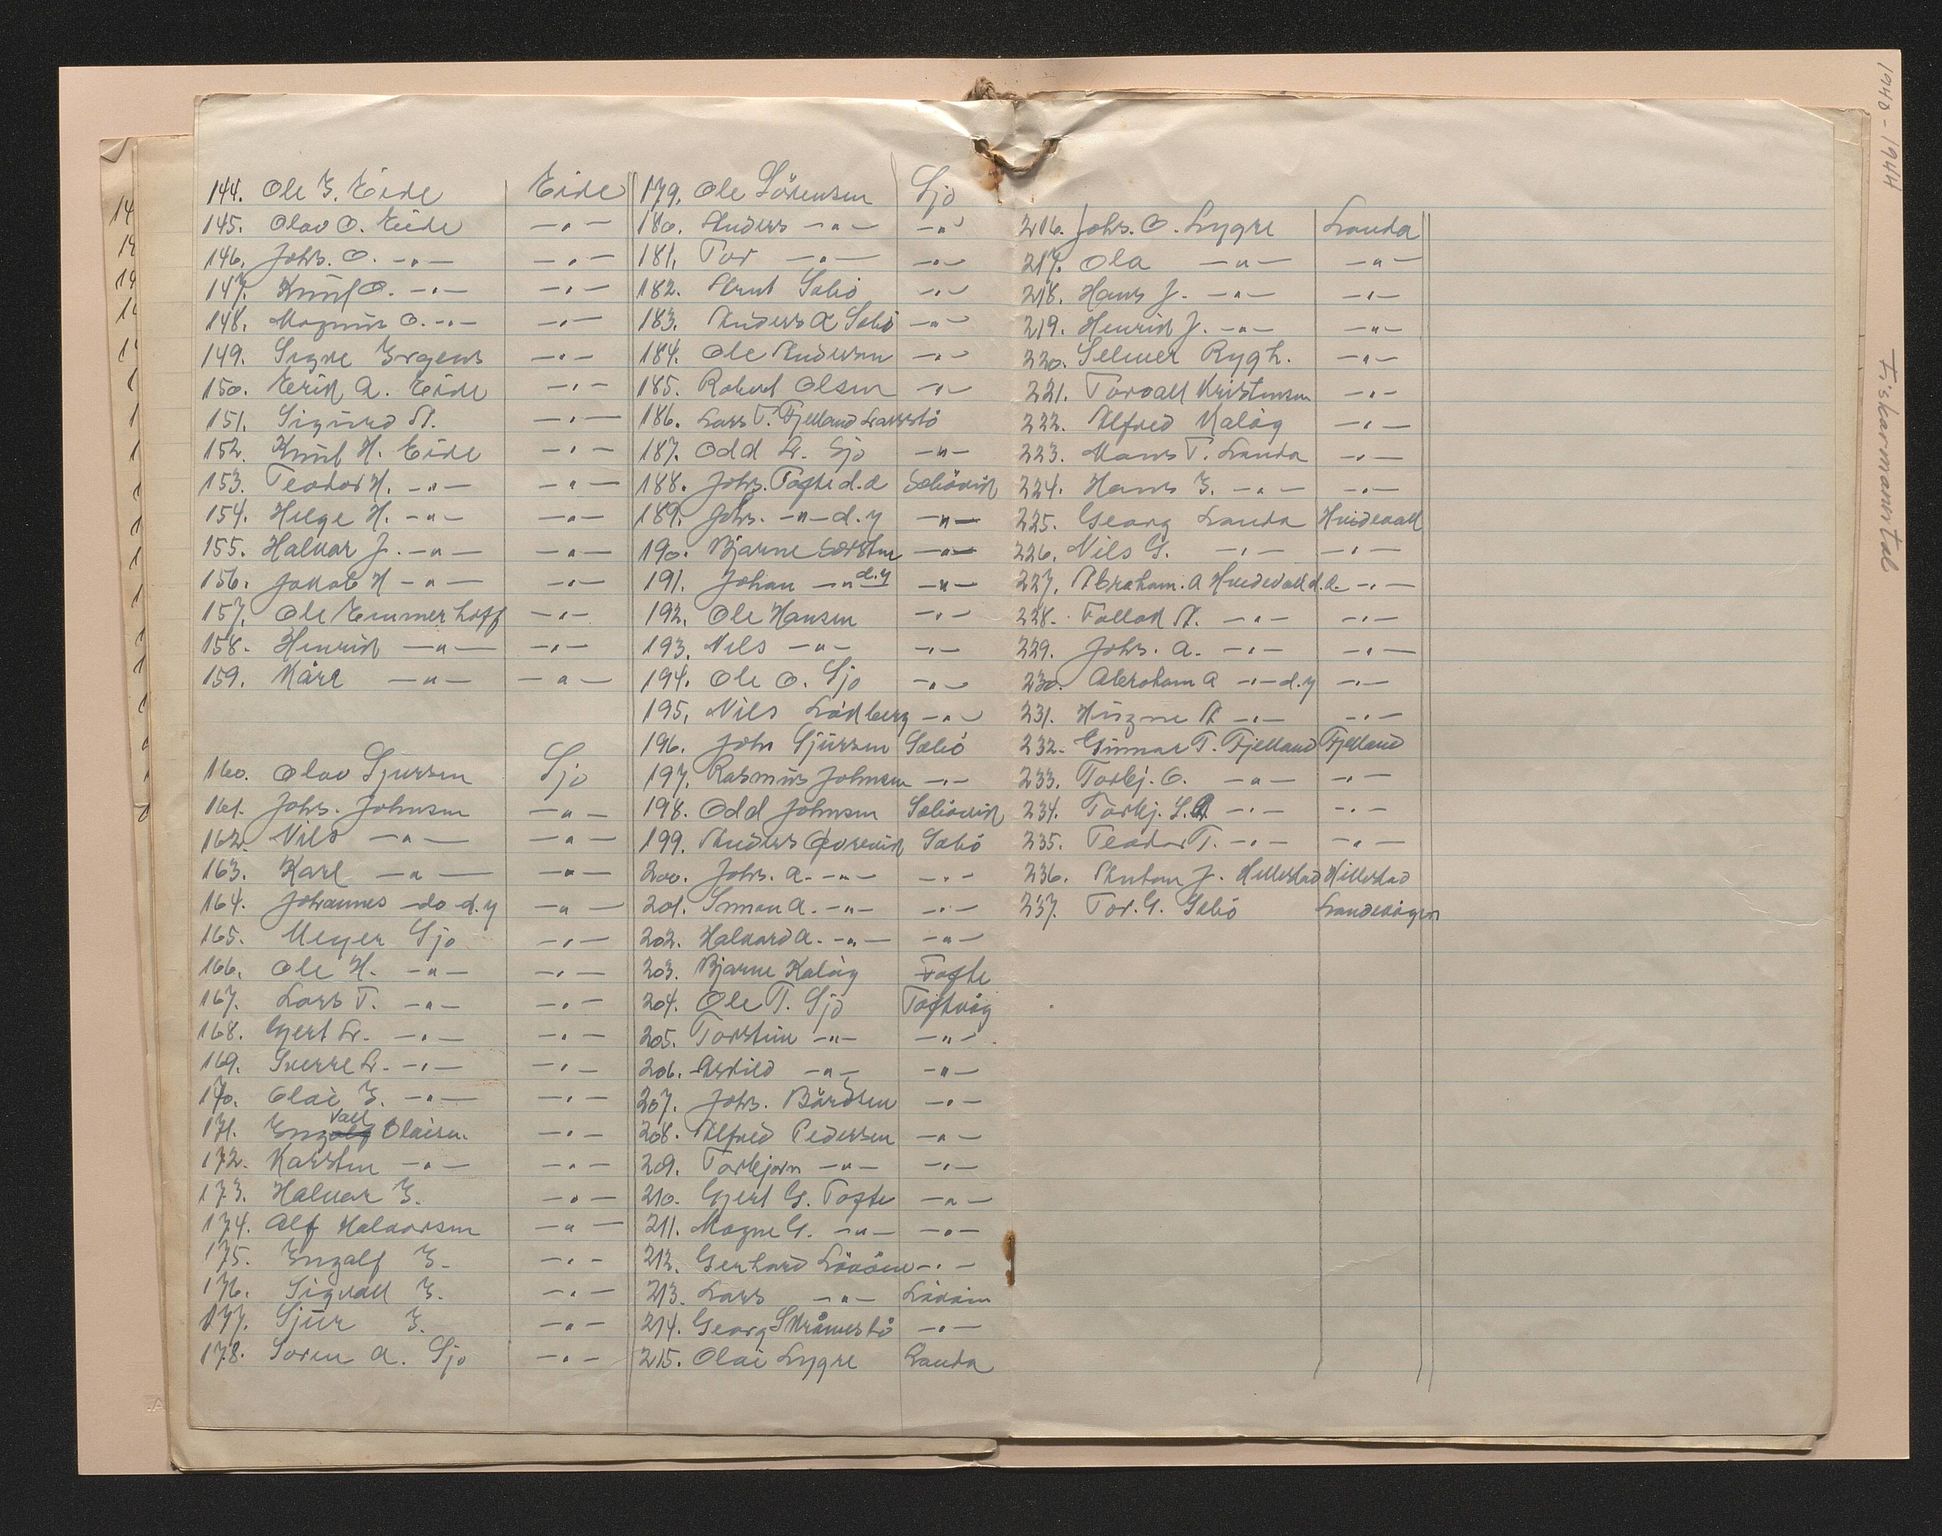 144. Ole I. Eide Eide
145. Olav O. Eide -"-
146. Johs. O. -"- -"-
147. Knut O. -"- -"-
148. Magnus O. -"- -"-
149. Signe Ergens -"-
150. Erik A. Eide -"-
151. Sigurd A. -"-
152. Knut H. Eide -"-
153. Teodor H. -"- -"-
154. Helge H. -"- -"-
155. Halvar J. -"- -"-
156. Jakob H -"- -"-
157. Ole Emmerhoff -"-
158. Henrik -"- -"-
159. Kåre -"- -"-
160. Olav Sjursen Sjo
161. Johs. Johnsen -"-
162. Nils -"- -"-
163. Karl -"- -"-
164. Johannes -do- d.y -"-
165. Meyer Sjo -"-
166. Ole H. -"- -"-
167. Lars T. -"- -"-
168. Gjert L. -"- -"-
169. Sverre L. -"- -"-
170. Olai I. -"- -"-
171. Ingvall Olaisen. -"-
172. Karsten -"- -"-
173. Halvar I. -"-
174. Alf Halvorsen -"-
175. Ingolf I. -"-
176. Sigvall I. -"-
177. Sjur I. -"-
178. Soren A. Sjo -"-
179. Ole Sörensen Sjo
180. Anders -"- -"-
181. Tor -"- -"-
182. Arnt Sæbö -"-
183. Anders A Sæbö -"-
184. Ole Andersen -"-
185. Robert Olsen -"-
186. Lars T. Fjelland
187. Odd L. Sjo -"-
188. Johs. Tofte d.e Sæbövik
189. Johs. -"- d.y -"-
190. Bjarne -"-
191. Johan -"- d.y -"-
192. Ole Hansen -"-
193. Nils -"- -"-
194. Ole O. Sjo -"-
195. Nils Lödberg -"-
196. John Sjursen Sæbö
197. Rasmus Johnsen -"-
198. Odd Johnsen Sæbövik
199. Anders Qvrevik Sæbö
200. Johs. A. -"- -"-
201. Simon A. -"- -"-
202. Halvard A. -"- -"-
203. Bjarne Kalåg Tofte
204. Ole T. Sjo Toftevåg
205. Torstein -"- -"-
206. -"- -"-
207. Johs. Bårdsen -"-
208. Alfred Pedersen -"-
209. Torbjorn -"- -"-
210. Gjert G. Tofte -"-
211. Magne G. -"- -"-
212. Gerhard Lövåen -"-
213. Lars -"- Lövåen
214. Georg Skråmestö -"-
215. Olai Lygre Landa
216. Johs. O. Lygre Landa
217. Ola -"- -"-
218. Hans J. -"- -"-
219. Henrik J. -"- -"-
220. Selmer Rygh. -"-
221. Torvall Kristensen -"-
222. Alfred Kalåg -"-
223. Mons T. Landa -"-
224. Hans I. -"- -"-
225. Georg Landa Hvidevall
226. Nils G. -"- -"-
227. Abraham. A Hvidevall d.e. -"-
228. Follak A. -"- -"-
229. Johs. A. -"- -"-
230. Abraham A -"- d.y -"-
231. A -"- -"-
232. Gunnar T. Fjelland Fjelland
233. Torbj. O. -"- -"-
234. Torbj. S. -"- -"-
235. Teodor T. -"- -"-
236. Anton J. Hillestad Hillestad
237. Tor. G. Sæbö Landavågen
1940-1944
Fiskarmanntal